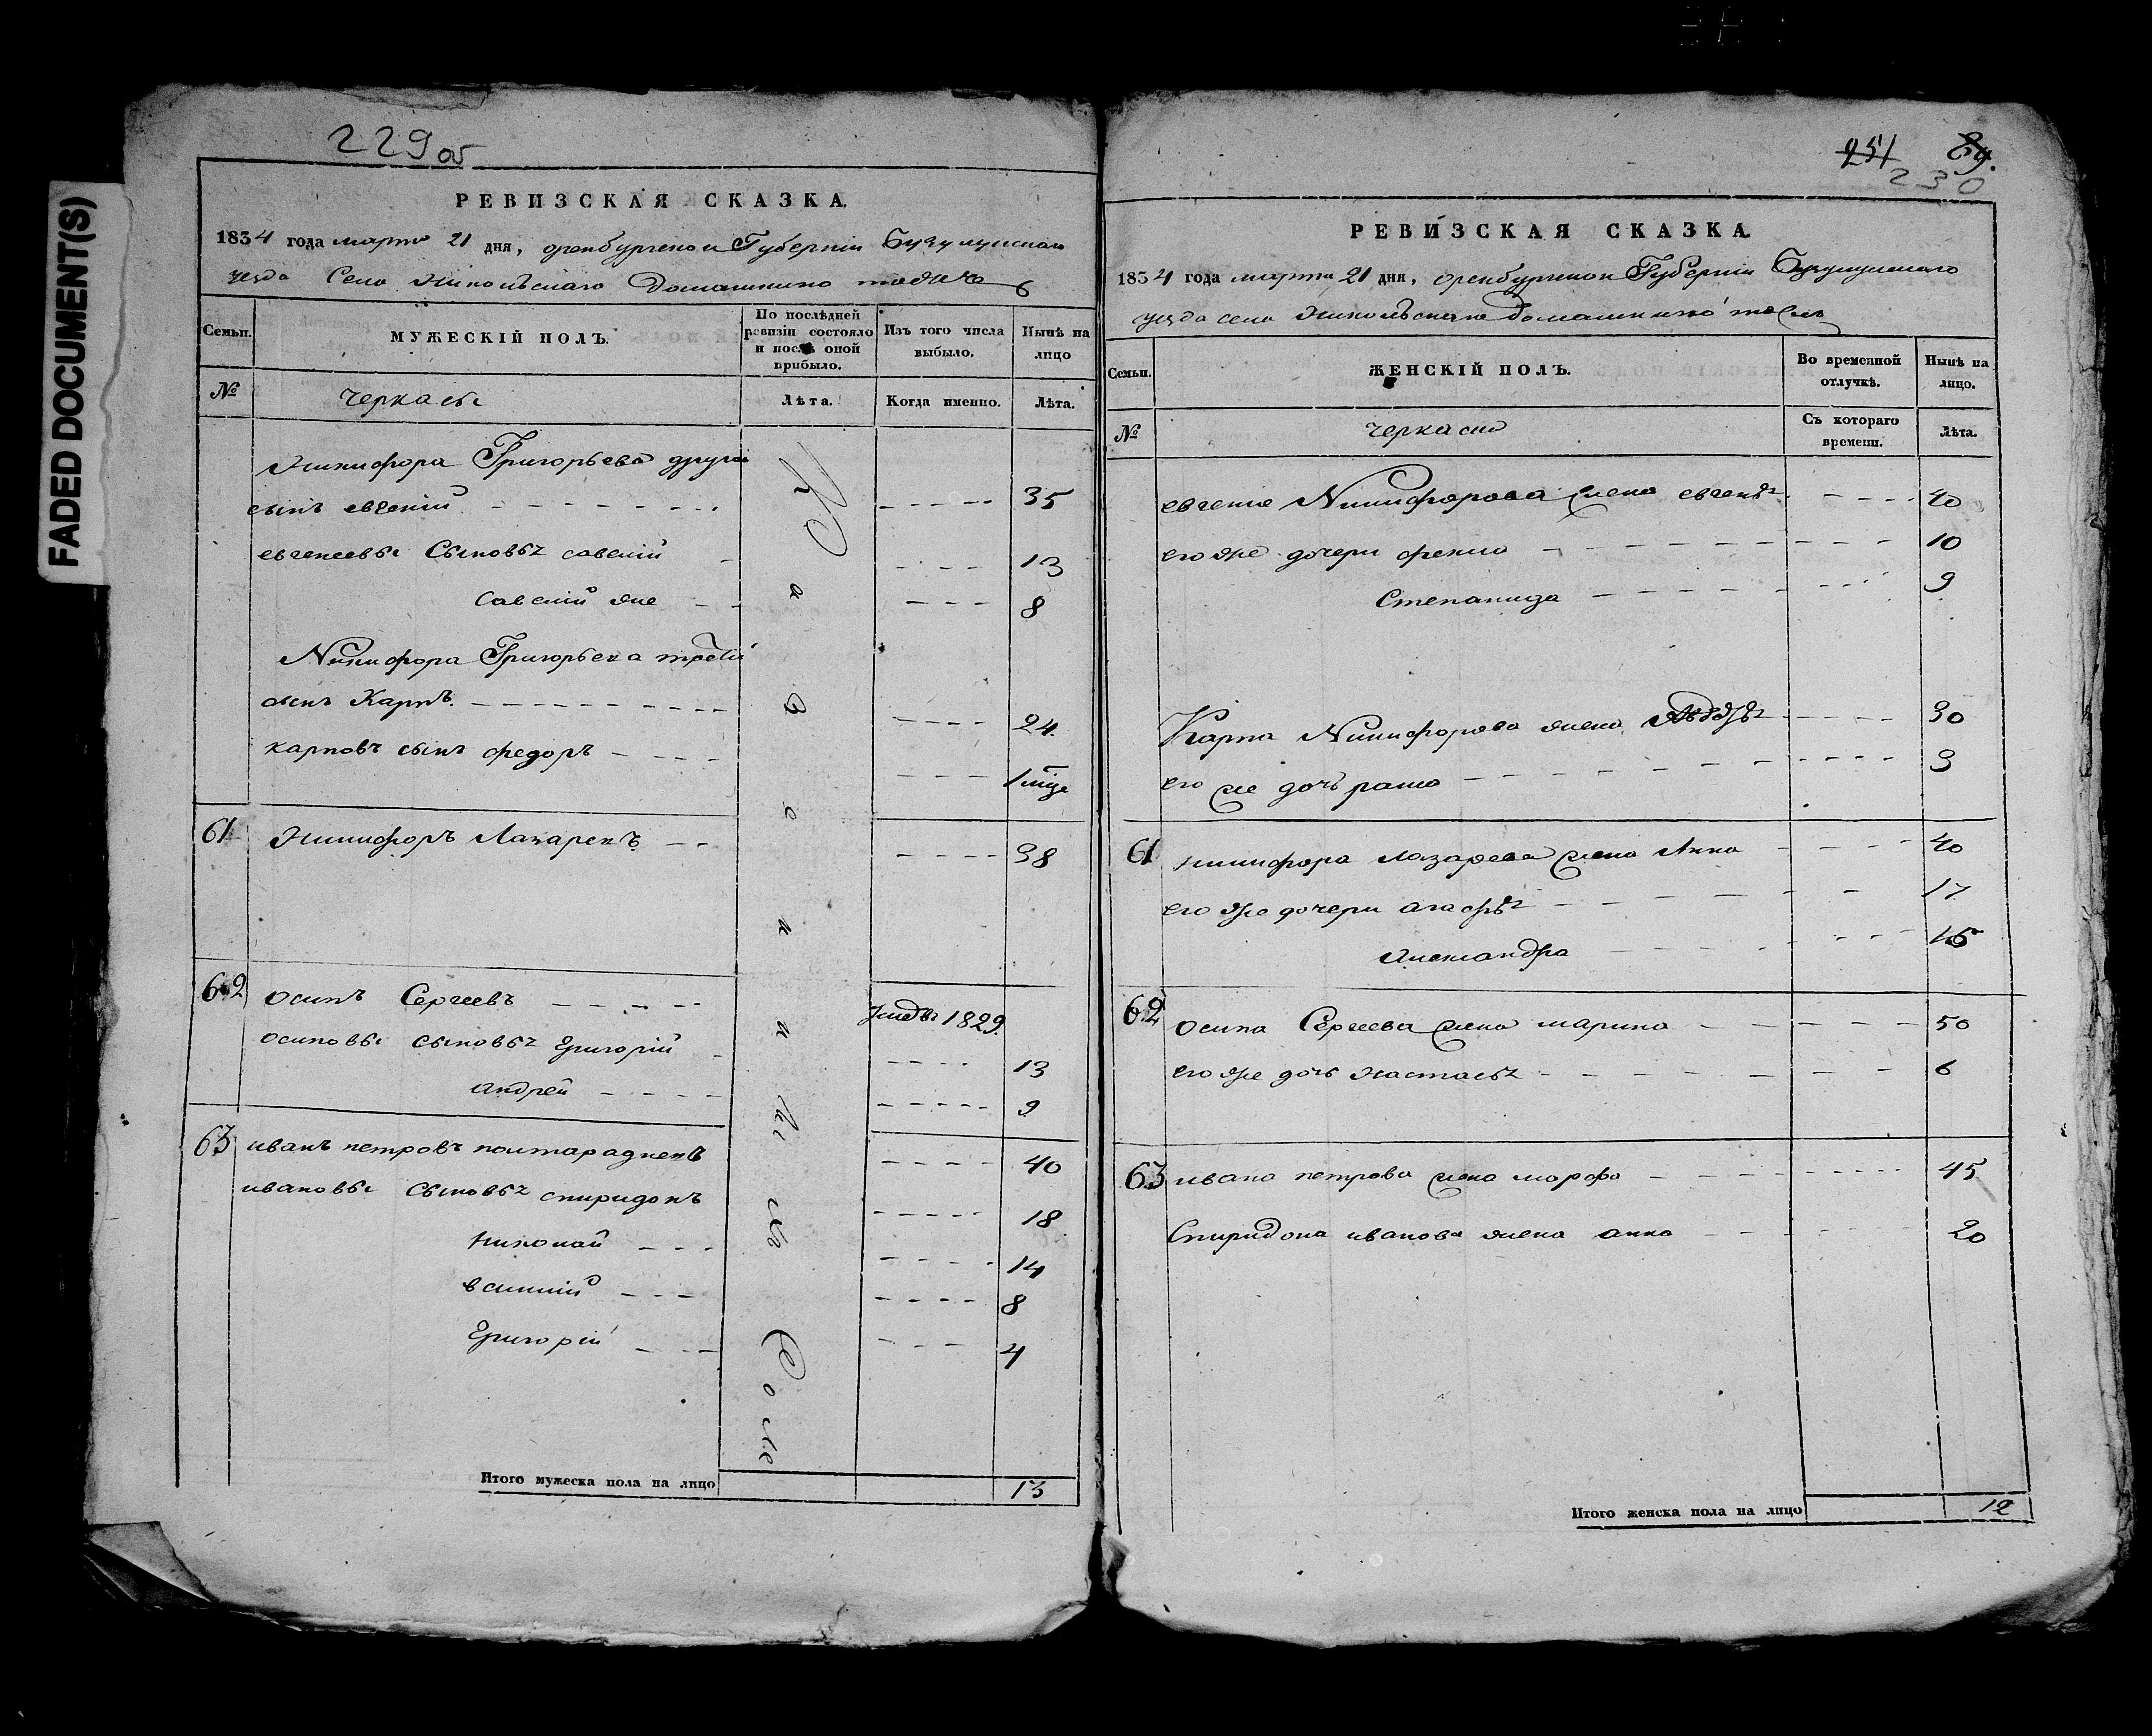 FADED DOCUMENT(S)
229об
РЕВИЗСКАЯ СКАЗКА.
1834 года марта 21 дня, оренбургской Губерніи Бузулуцкаго
уезда Села Никольскаго Домашкино тоже
Семьи.
МУЖЕСКІЙ ПОЛЪ.
По послѣдней ревизіи состояло и послѣ оной прибыло.
Изъ того числа выбыло.
Нынѣ на лицо
№
черкасы
Лѣта.
Когда именно.
Лѣта.
Никифора Григорьева другой
сынъ евгеній 35
евгеневы Сыновьѧ савелій 13
Савелій же 8
Никифора Григорьева третій
сынъ Карпъ. 24.
карповъ сынъ федоръ 1 мѣсе
61 Никифоръ Лазаревъ 38
62 осипъ Сергеевъ 1829.
осиповы сыновья григорій 13
андрей 9
63 иванъ петровъ 40
ивановы сыновья спиридонъ 18
николай 14
василий 8
григорій 4
Итого мужеска пола на лицо 13
251 89.
230
РЕВИЗСКАЯ СКАЗКА.
1834 года марта 21 дня, оренбургской Губерніи Бузулуцкаго
уезда села Никольскаго домашкино тожъ
Семьи.
ЖЕНСКІЙ ПОЛЪ.
Во временной отлучкѣ.
Нынѣ на лицо.
№
черкасы
Съ котораго времени.
Лѣта.
евгение Никифорова жена 40
его же дочери фекла 10
Степанида 9
Карпа Никифорова жена 30
его же дочь 3
61 никифора лазарева жена Анна 40
его же дочери агафья 17
Александра 15
62 осипа Сергеева жена марина 50
его же дочь настасья 6
63 ивана петрова жена марфа 45
Спиридона иванова жена анна 20
Итого женска пола на лицо 12